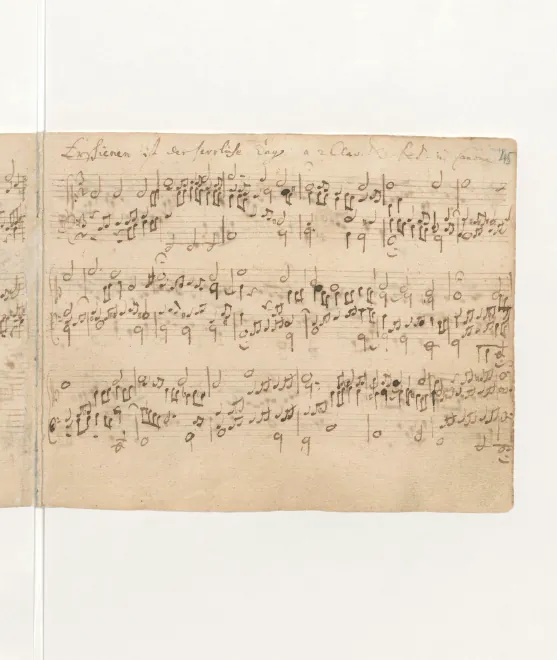 Erschienen ist der herrliche Tag a 2 Clav. & Ped. in Canone 45